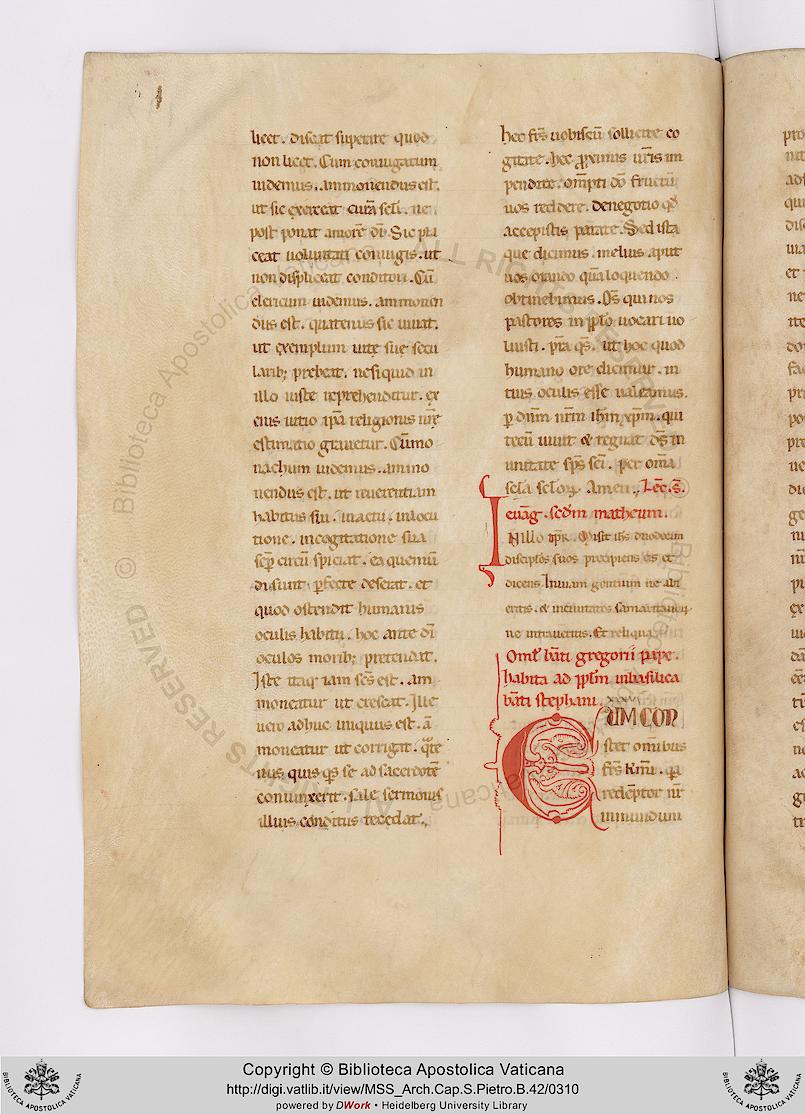 licet. discat superare quod
non licet. Cum coniugatum
uidemus. ammonendus est.
ut sic exerceat curā scłi. ne
post ponat amorē dī. Sic pla
ceat uoluntati coniugis. ut
non displiceat conditori. Cū
clericum uidemus. ammonen
dus est. quatenus sic uiuat.
ut exemplum uitę suę secu
larib; prebeat. ne si quid in
illo iuste reprehenditur. ex
eius uitio ipā religionis nrę
estimatio grauetur. Cū mo
nachum uidemus. ammo
nendus est. ut reuerentiam
habitus sui. in actu. in locu
tione. in cogitatione sua
semp circū spiciat. ea que mū
di sunt pfecte deserat. et
quod ostendit humanis
oculis habitu. hoc ante dī
oculos morib; pretendat.
Iste itaq; iam scs est. am
moneatur ut crescat. Ille
uero adhuc iniquus est. ā
moneatur ut corrigat. q̄te
nus quis qs se ad sacerdotē
coniunxerit. sale sermonis
illius conditus recedat.
hec frs uobiscū sollicite co
gitate. hec proximis uris im
pendite. ompti dō fructū
uos reddere. de negotio qd
accepistis parate. Sed ista
que dicimus. melius aput
uos orando quā loquendo
obtinebimus. Ds qui nos
pastores in pplo uocari uo
luisti. pra qs. ut hoc quod
humano ore dicimur. in
tuis oculis esse ualeamus.
p dnm nrm ihm xpm. qui
tecū uiuit & regnat ds in
unitate sps sci. per omia
scła scłor. Amen. Lec. s.
euāg. scdm matheum.
IN illo tpr. Misit ihs duodecim
discipłos suos precipiens eis et
dicens. In uiam gentium ne abi
eritis. & in ciuitates samaritanor
ne intraueritis. Et reliqua.
Omł bati gregorii pape.
habita ad pplm in basilica
bati stephani.
CUM CON
stet omibus
frs kmi. qa
redēptor nr
in mundum
Copyright © Biblioteca Apostolica Vaticana
http://digi.vatlib.it/view/MSS_Arch.Cap.S.Pietro.B.42/0310
powered by DWork • Heidelberg University Library